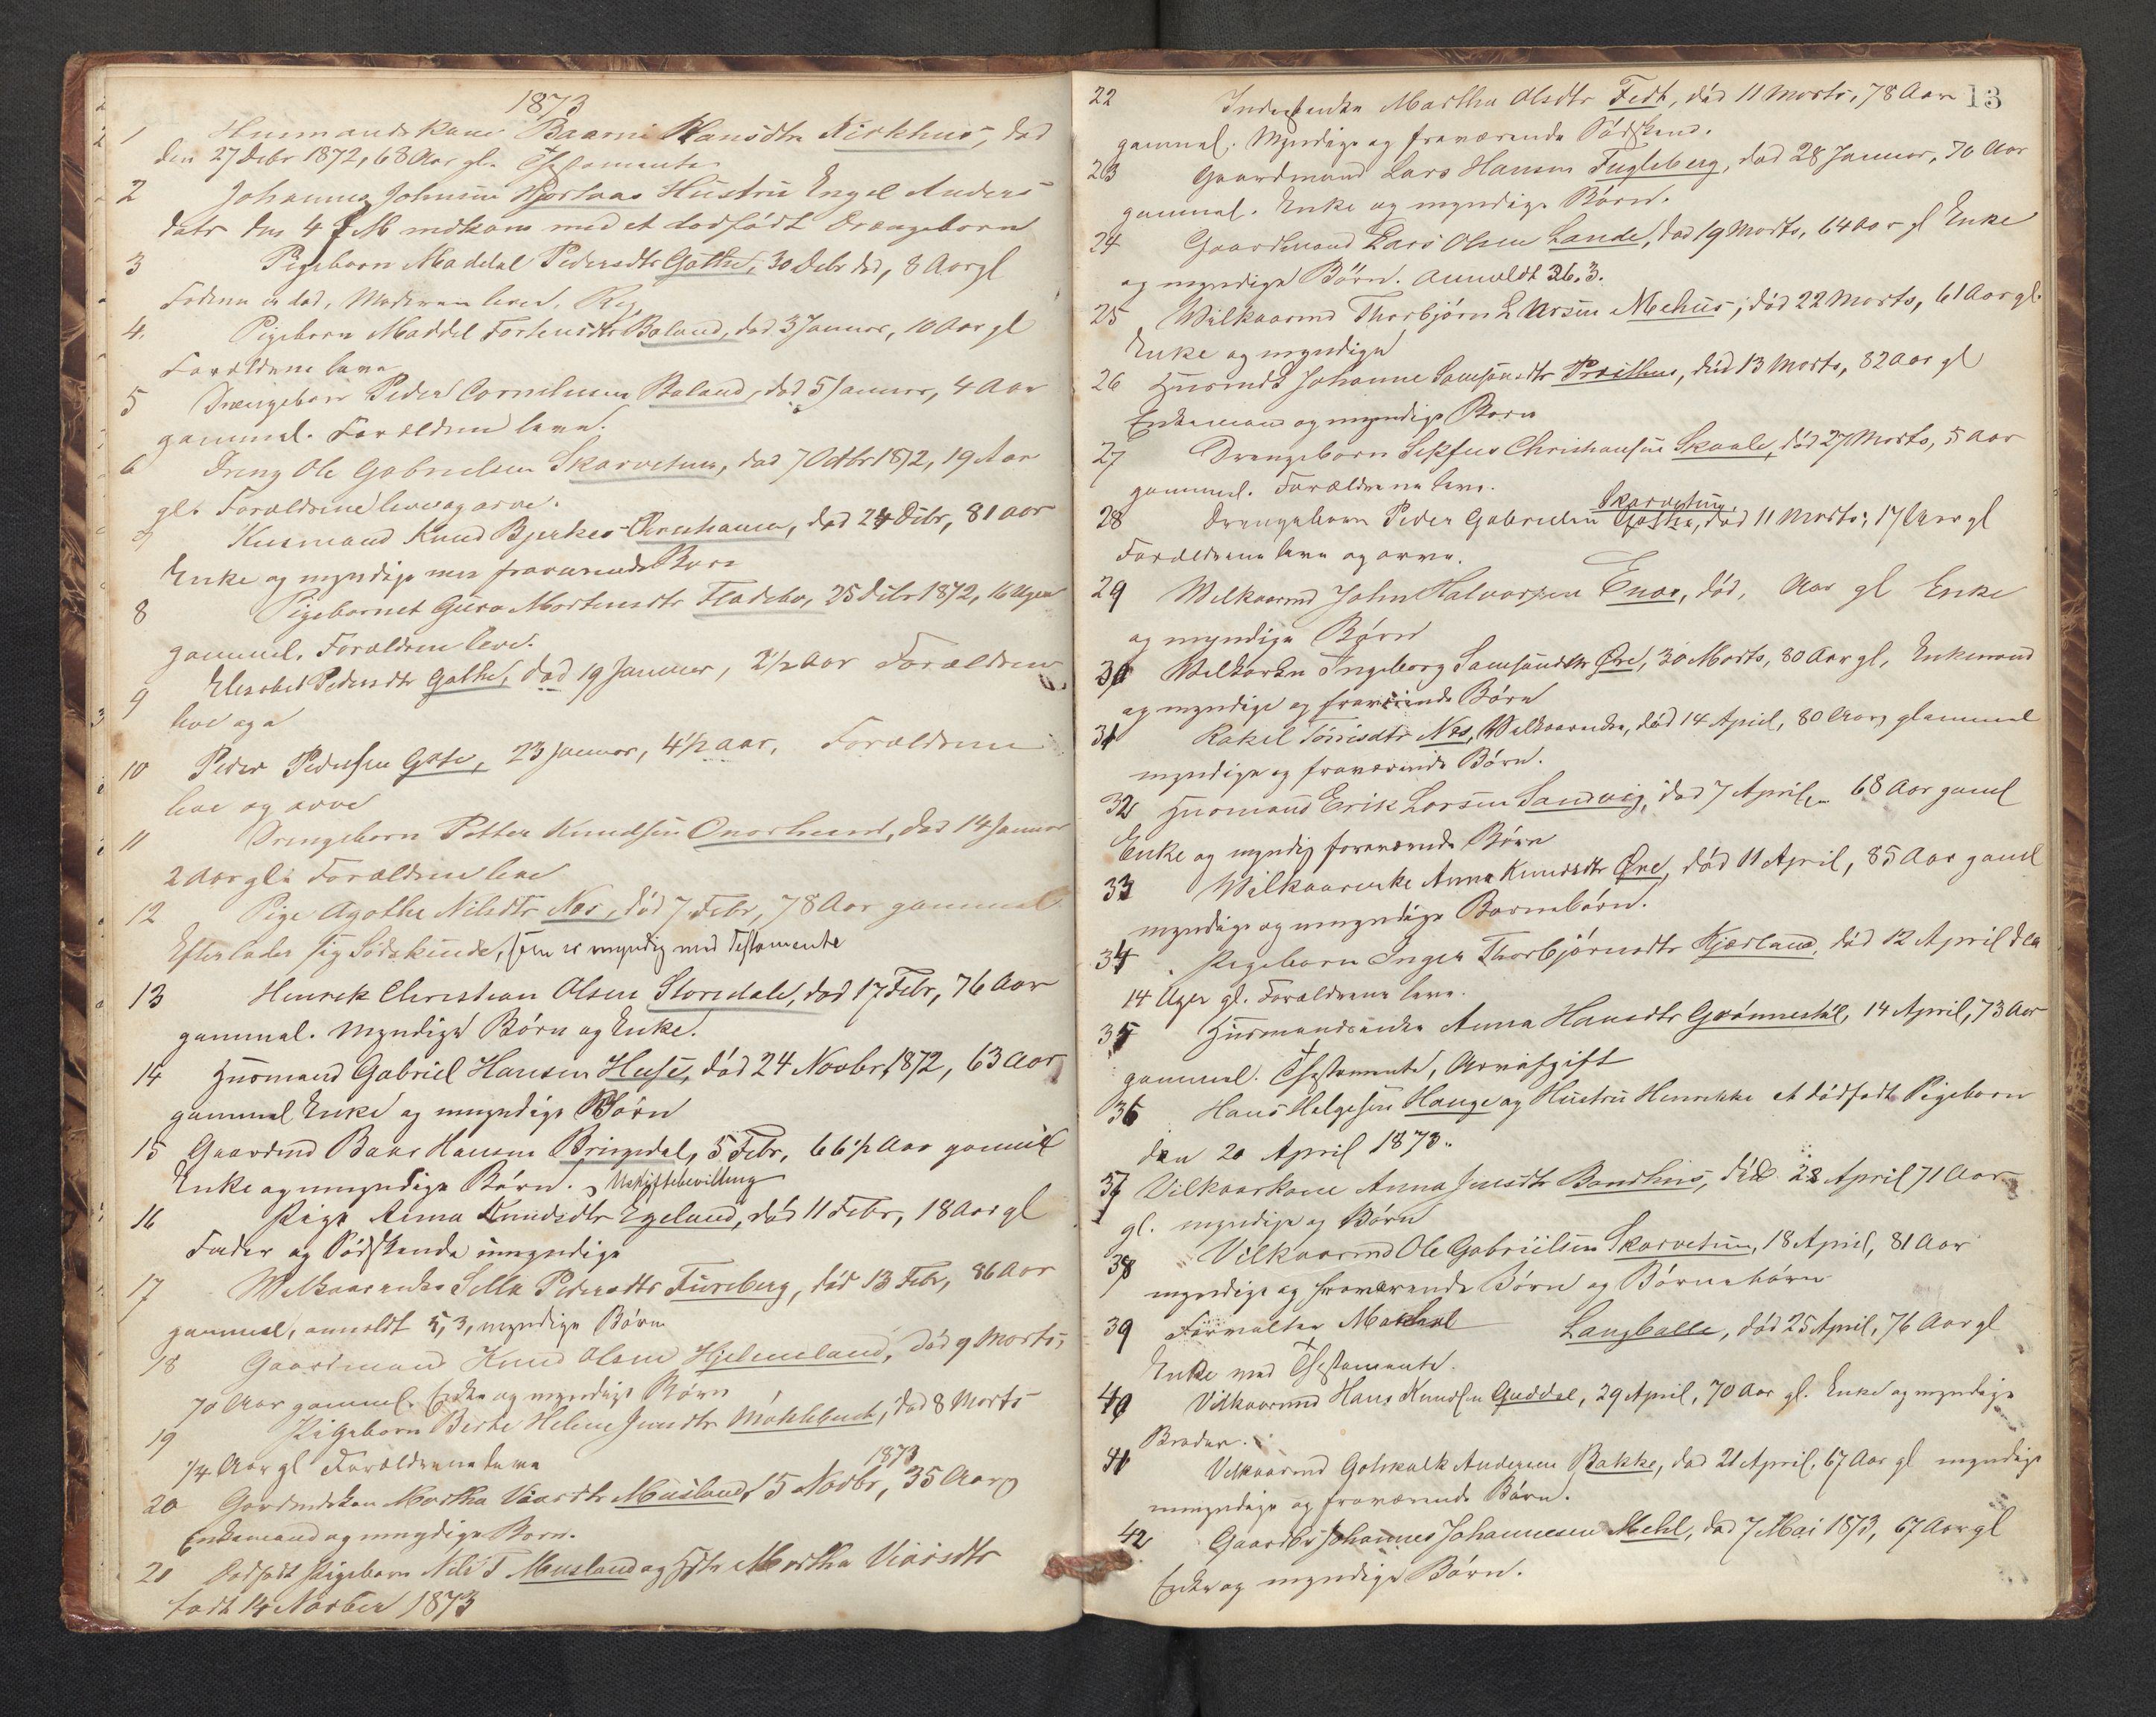 1873
1 Huusmandskone Baarni Hansdtr Kirkhus, død
den 27 Debr 1872, 68 Aar gl. Testamente
2 Johannes Johnsen Hjortaas Hustru Engel Anders
datr den 4 M nedkom med et dødfødt Drængebørn
3 Pigebarn Maddel Pedersdtr Gathe, 30 Debr død, 8 Aar gl
Faderen er død, Moderen lever.
4. Pigebarn Maddel Tortensdtr Baland, død 3 Januar, 10 Aar gl
Forældrene leve
5 Drængebarn Peder Corneliusen Baland, død 5 Januar, 4 Aar
gammel. Forældrene leve.
6 Dreng Ole Gabrielsen Skarvetun, død 7 Octbr 1872, 19 Aar
gl. Forældrene leve og arve.
7 Huusmand Knud Bjerkes, død 24 Debr, 81 aar
Enke og myndige men fraværende Børn
8 Pigebarnet Guro Mortensdtr Fladebø, 25 Debr 1872, 16 Uger
gammel, Forældrene leve.
9 Elesabet Pedersdtr Gathe, død 19 Januar, 2½ Aar Forældrene
leve og a
10 Peder Pedersen Gate, 23 Januar, 4½ aar, Forældrene
leve og arve
11 Drengebarn Petter Knudsen Onarheim, død 14 Januar
2 Aar gl. Forældrene leve
12 Pige Agathe Nilsdtr Nes, død 7 Febr, 78 Aar gammel
Efterlader sig Sødskende, som er myndig med Testamente
13 Henrek Christian Olsen Storedale, død 17 Febr, 76 Aar
gammel. Myndige Børn og Enke.
14 Huusmand Gabriel Hansen Huse, død 24 Novbr, 1872, 63 Aar
gammel Enke og umyndige Børn
15 Gaardmd Baar Hansen Bringedal, 5 Febr, 66½ Aar gammel
Enke og umyndige Børn. Uskiftebevilling
16 Pige Anna Knudsdtr Egeland, død 11 Febr, 18 Aar gl
Fader og Sødskende umyndige
17 Welkaarenke Sella Pedersdtr Fureberg, død 13 Febr, 86 Aar
gammel, anmeldt 5,3, myndige Børn
18 Gaardmand Knud Olsen Hjelmeland, død 9 Marts,
70 Aar gammel. Enke og myndige Børn
19 Pigebarn Berte Helene Jensdtr Møklebust, død 8 Marts
¼ Aar gl Forældrene leve
1873
20 Gardmdskone Martha Viarsdtr Musland, 15 Novbr, 35 Aar
Enkemand og umyndige Børn.
21 Dødfødt Pigebarn Nils T Musland og Hstr Martha Viarsdtr
født 14 Novber 1873
13
22 Inderstenke Martha Olsdtr Fedt, død 11 Marts, 78 Aar
gammel. Myndige og fraværende Sødskend.
23 Gaardmand Lars Hansen Fugleberg, død 28 Januar, 70 Aar
gammel. Enke og myndige Børn.
24 Gaardmand Lars Olsen Lande, død 19 Marts, 64 Aar gl Enke
og myndige Børn. Anmeldt 26.3.
25 Wilkaarmd Thorbjørn Larsen Mehus, død 22 Marts, 61 Aar gl.
Enke og myndige
26 Huusmdk Johanne Samsonsdtr Præsthus, død 13 Marts, 82 aar gl
Enkemand og myndige Børn
27 Drengebarn Sekfus Christiansen Skaale, død 27 Marts, 5 Aar
gammel. Forældrene leve.
Skarvetun,
28 Drengebarn Peder Gabrielsen Gathe, død 11 Marts, 17 Uger gl
Forældrene leve og arve.
29 Welkaarmd John Halvorsen Enes, død, Aar gl Enke
og myndige Børn
30 Welkarkn Ingeborg Samsonsdtr Øre, 30 Marts, 80 Aar gl, Enkemand
og myndige og fraværende Børn
31 Rakel Torrisdtr Nes, Welkaarenke, død 14 April, 80 Aar, glammel
myndige og fraværende Børn.
32 Huusmand Erik Larsen Sandvig, død 7 April, 68 Aar gaml
Enke og myndig fraværende Børn
33 Wilkaarenke Anna Knudsdtr Øre, død 11 April, 85 Aar gaml
myndige og umyndige Barnebørn.
34 Pigebarn Inger Thorbjørnsdtr Kjærland, død 12 April d Aa
14 Uger gl. Forældrene leve.
35 Huusmandsenke Anna Hansdtr Grønnestøl, 14 April, 73 Aar
gammel. Testamente, Arveafgift
36 Hans Helgesen Hauge og Hustru Henrikke et dødfødt Pigebørn
den 20 April 1873.
37 Vilkaarkone Anna Jensdtr Bondhus, død 22 April 71 Aar
gl. myndige og Børn
38 Vilkaarmd Ole Gabrielsen Skarvetun, 18 April, 81 Aar
myndige og fraværende Børn og Børnebørn
39 Forvalter Langballe, død 25 April, 76 Aar gl
Enke med Testamente.
40 Vilkaarmd Hans Knudsen Guddal, 29 April, 70 Aar gl. Enke og myndige
Brødre.
41 Vilkaarmd Gotskalk Andersen Bakke, død 21 April, 67 Aar gl myndige
umyndige og fraværende Børn.
42 Gaardbr Johannes Johannesen Mehl, død 7 Mai 1873, 67 Aar gl
Enke og myndige Børn.